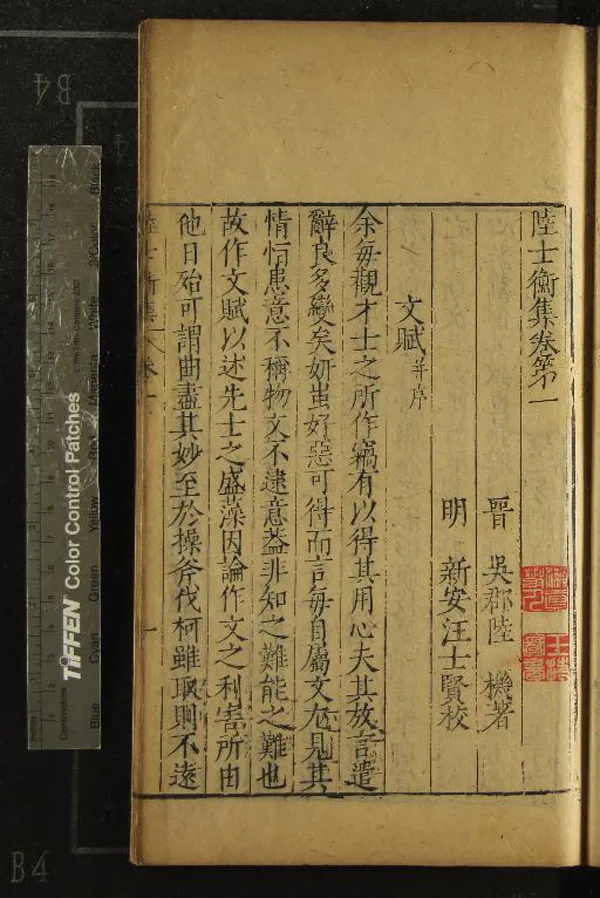 陸士衡集卷第一
晉 吳郡陸 機著
明 新安汪士賢校
文賦并序
余每觀才士之所作竊有以得其用心夫其放言遣
辭良多變矣妍蚩好惡可得而言每自屬文尤見其
情恒患意不稱物文不逮意葢非知之難能之難也
故作文賦以述先士之盛藻因論作文之利害所由
他日殆可謂曲盡其妙至於操斧伐柯雖取則不遠
陸士衡集 卷一 一
B4
B4
TIFFEN Color Control Patches
© The Tiffen Company, 2007
Inches
Centimetres
Blue
Cyan
Green
Yellow
Red
Magenta
White
3/Color
Black